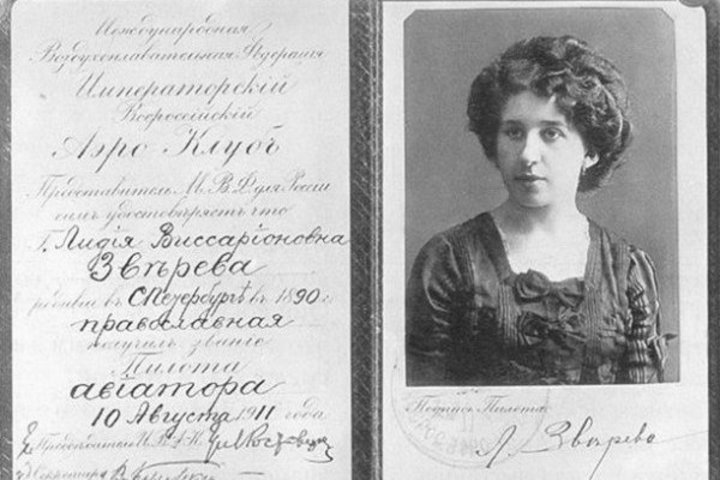 Международная
Воздухоплавательная Федерацiя
Императорскiй
Всероссiйскiй
Аэро Клубъ
Представитель М. В. Ф. для Россiи
симъ удостовѣряетъ что
Г. Лидiя Виссарiоновна
Звѣрева
родивш въ СПетербургѣ въ 1890 г.
православная
получилъ званiе
Пилота
авiатора
10 Августа 1911 года
Председатель
Секретарь
Подпись Пилота:
Л. Звѣрева